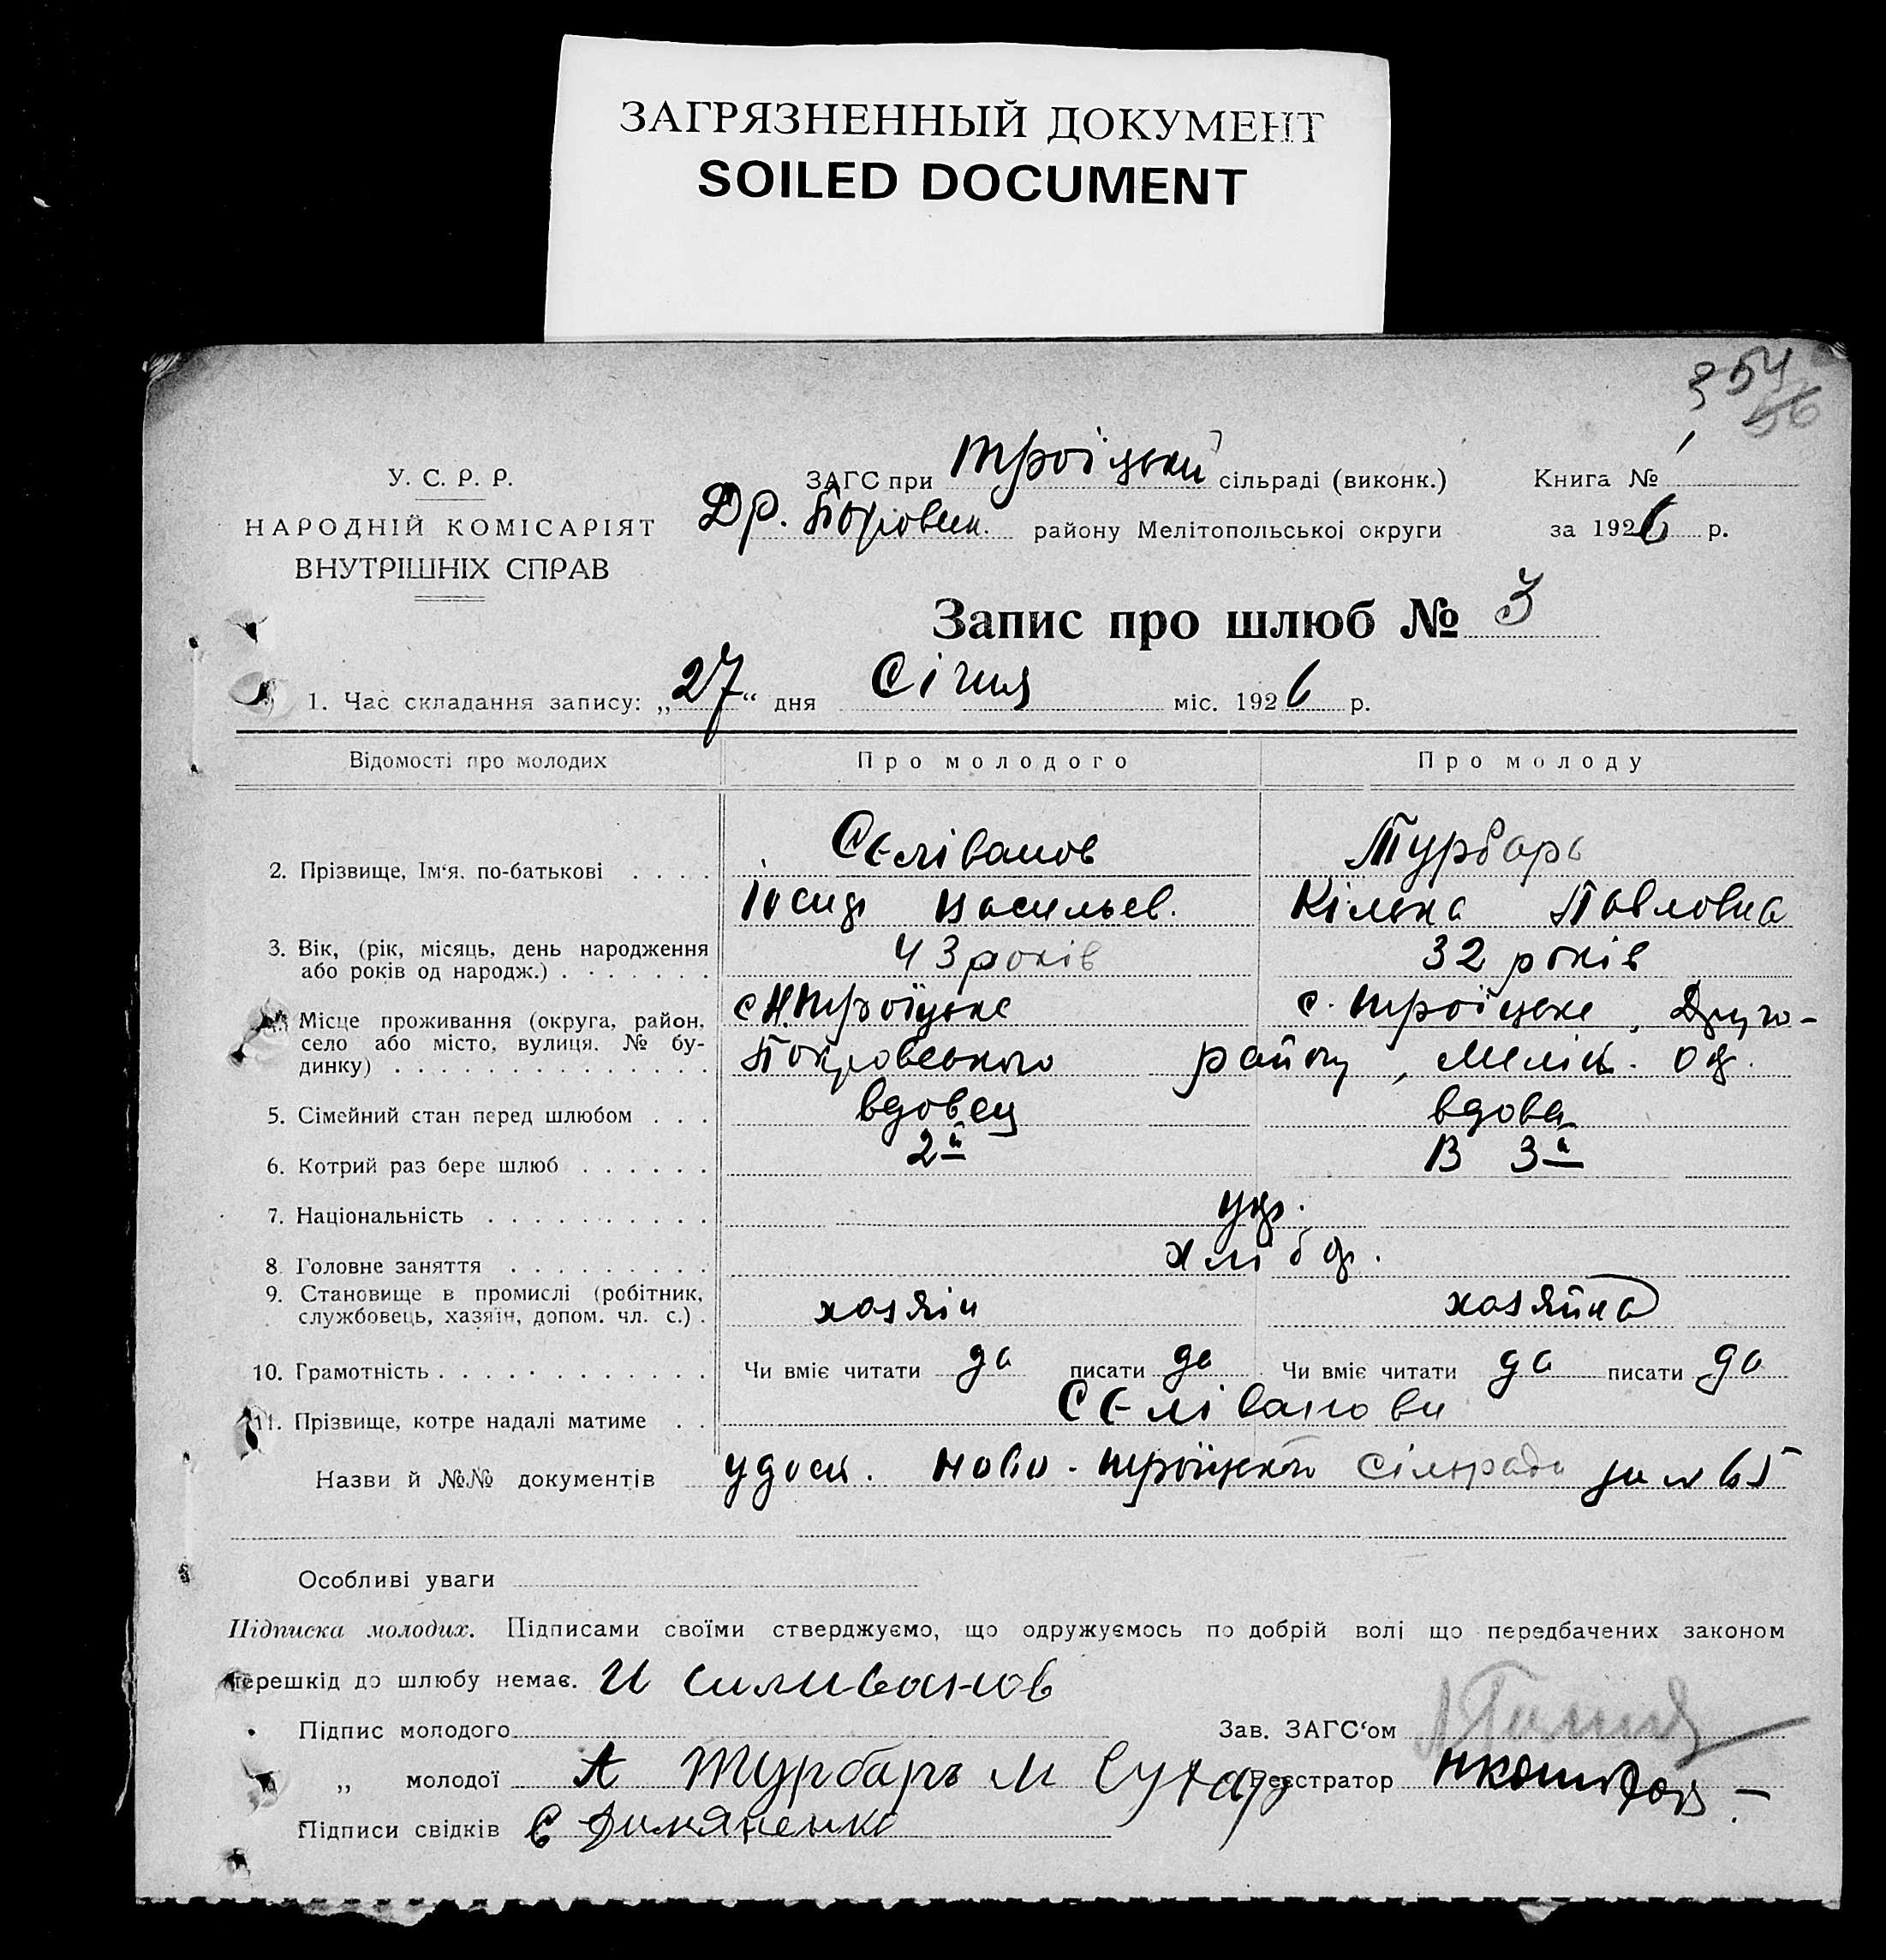 ЗАГРЯЗНЕННЫЙ ДОКУМЕНТ
SOILED DOCUMENT
354
56
У. С. Р. Р.
НАРОДНІЙ КОМІСАРІЯТ
ВНУТРІШНІХ СПРАВ
ЗАГС при Троіцькій сільраді (виконк.) Книга № 1
Др. Покровськ. району Мелітопольської округи за 1926 р.
Запис про шлюб № 3
1. Час складання запису: „27“ дня Січня міс. 1926 р.
Відомості про молодих Про молодого Про молоду
Селіванов Турбарь
2. Прізвище, Ім‘я, по-батькові . . . .
Іосиф Васильев. Павловна
3. Вік, (рік, місяць, день народження 43 років 32 років
або років од народж.) . . . . . . .
с. Н. Троїцьке с. Троїцьке, Друго-
Місце проживання (округа, район,
село або місто, вулиця, № бу-
динку) . . . . . . . . . . . . . . Покровського району, Меліт. ок.
5. Сімейний стан перед шлюбом . . . вдовец вдова
6. Котрий раз бере шлюб . . . . . . 2й В 3й
7. Національність . . . . . . . . . . укр.
8. Головне заняття . . . . . . . . . хліб
9. Становище в промислі (робітник,
службовець, хазяїн, допом. чл. с.) . хозяін хозяйка
10. Грамотність . . . . . . . . . . . . Чи вміє читати да писати да Чи вміє читати да писати да
11. Прізвище, котре надалі матиме . . Селіванови
Назви й №№ документів удост. Ново-Троїцького сільради за № 65
Особливі уваги
Підписка молодих. Підписами своїми стверджуємо, що одружуємось по добрій волі що передбачених законом
перешкід до шлюбу немає. И Силиванов
Підпис молодого Зав. ЗАГС‘ом
„ молодої А Турбарь М Сухар Реєстратор
Підписи свідків Є